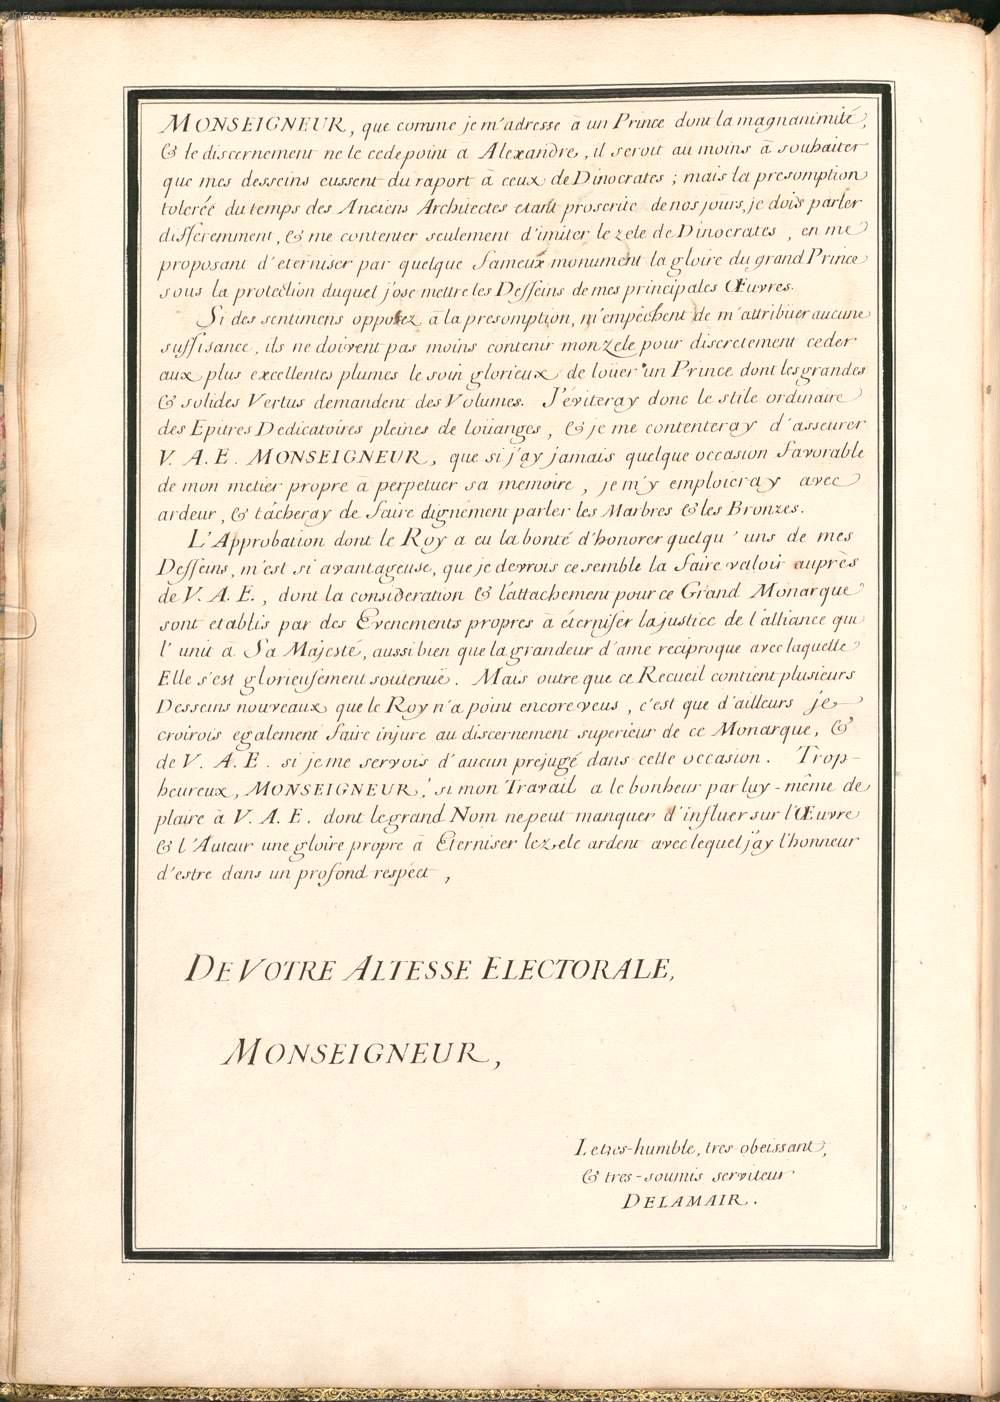 MONSEIGNEUR, que comme je m'adresse à un Prince dont la magnanimité,
& le discernement ne le cede point à Alexandre, il seroit au moins à souhaiter
que mes desseins eussent du raport à ceux de Dinocrates ; mais la presomption
tolerée du temps des Anciens Architectes etant proscrite de nos jours, je dois parler
differemment, & me contenter seulement d'imiter le zele de Dinocrates, en me
proposant d'eterniser par quelque fameux monument la gloire du grand Prince
sous la protection duquel j'ose mettre les Desseins de mes principales Œuvres.
Si des sentimens opposez à la presomption, m'empêchent de m'attribüer aucune
suffisance, ils ne doivent pas moins contenir mon zele pour discretement ceder
aux plus excellentes plumes le soin glorieux de loüer un Prince dont les grandes
& solides Vertus demandent des Volumes. J'éviteray donc le stile ordinaire
des Epitres Dedicatoires pleines de loüanges, & je me contenteray d'asseurer
V. A. E. MONSEIGNEUR, que si j'ay jamais quelque occasion favorable
de mon metier propre à perpetuer sa memoire, je m'y emploieray avec
ardeur, & tâcheray de faire dignement parler les Marbres & les Bronzes.
L'Approbation dont le Roy a eu la bonté d'honorer quelqu'uns de mes
Desseins, m'est si avantageuse, que je devrois ce semble la faire valoir auprès
de V. A. E., dont la consideration & l'attachement pour ce Grand Monarque
sont etablis par des Evenements propres à éterniser la justice de l'alliance qui
l'unit à Sa Majesté, aussi bien que la grandeur d'ame reciproque avec laquelle
Elle s'est glorieusement soutenuë. Mais outre que ce Recueil contient plusieurs
Desseins nouveaux que le Roy n'a point encore veus, c'est que d'ailleurs je
croirois egalement faire injure au discernement superieur de ce Monarque, &
de V. A. E. si je me servois d'aucun prejugé dans cette occasion. Trop-
heureux, MONSEIGNEUR, si mon Travail a le bonheur par luy-même de
plaire à V. A. E. dont le grand Nom ne peut manquer d'influer sur l'Œuvre
& l'Auteur une gloire propre à Eterniser le zele ardent avec lequel j'ay l'honneur
d'estre dans un profond respect,
DE VOTRE ALTESSE ELECTORALE,
MONSEIGNEUR,
Le tres-humble, tres obeissant,
& tres-soumis serviteur
DELAMAIR.